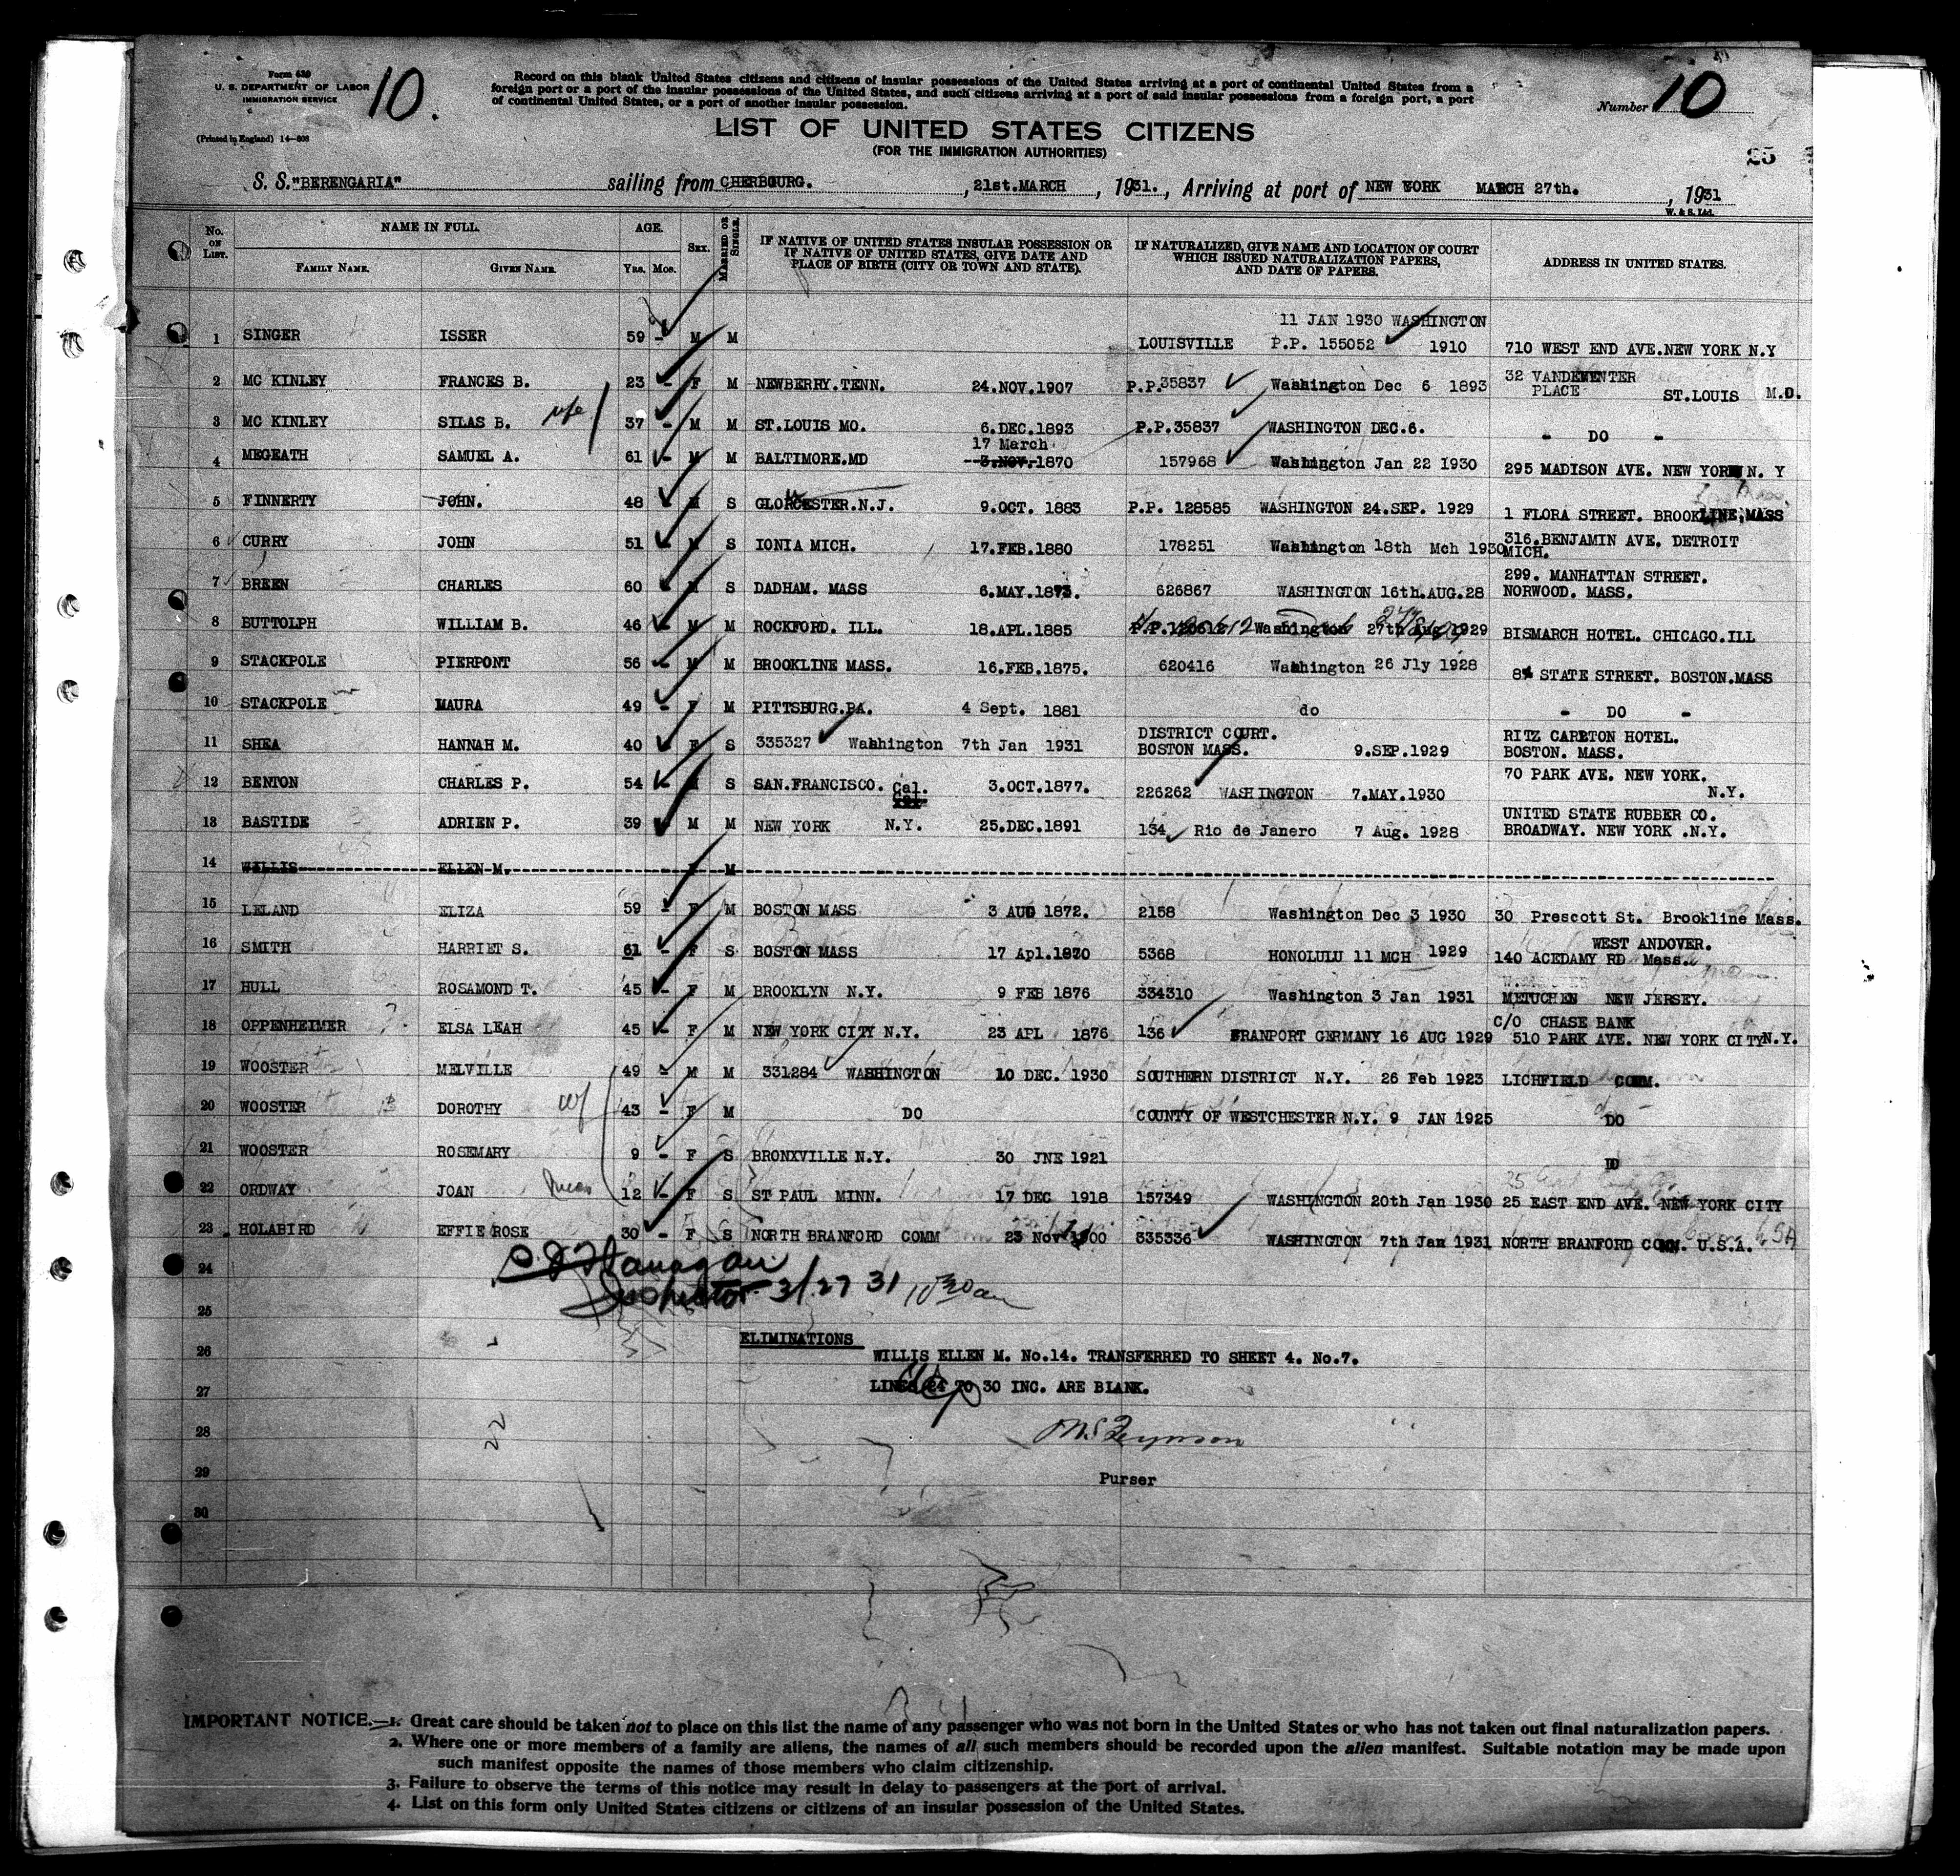 Form 630
U. S. DEPARTMENT OF LABOR
IMMIGRATION SERVICE
10.
(Printed in England) 14—808
Record on this blank United States citizens and citizens of insular possessions of the United States arriving at a port of continental United States from a
foreign port or a port of the insular possessions of the United States, and such citizens arriving at a port of said insular possessions from a foreign port, a port
of continental United States, or a port of another insular possession.
Number 10
LIST OF UNITED STATES CITIZENS
(FOR THE IMMIGRATION AUTHORITIES)
25
S. S. "BERENGARIA" sailing from CHERBOURG. , 21st.MARCH , 1931. , Arriving at port of NEW YORK MARCH 27th. , 1931
W. & S. Ltd.
No. ON LIST. NAME IN FULL. FAMILY NAME. GIVEN NAME. AGE. YRS. MOS. SEX. MARRIED OR SINGLE.
IF NATIVE OF UNITED STATES INSULAR POSSESSION OR
IF NATIVE OF UNITED STATES, GIVE DATE AND
PLACE OF BIRTH (CITY OR TOWN AND STATE).
IF NATURALIZED, GIVE NAME AND LOCATION OF COURT
WHICH ISSUED NATURALIZATION PAPERS,
AND DATE OF PAPERS.
ADDRESS IN UNITED STATES.
11 JAN 1930 WASHINGTON
1 SINGER ISSER 59 - M M LOUISVILLE P.P. 155052 1910 710 WEST END AVE.NEW YORK N.Y
2 MC KINLEY FRANCES B. 23 - F M NEWBERRY.TENN. 24.NOV.1907 P.P.35837 Washington Dec 6 1893 32 VANDEWENTER
PLACE ST.LOUIS M.O.
3 MC KINLEY SILAS B. wfe 37 - M M ST.LOUIS MO. 6.DEC.1893 P.P.35837 WASHINGTON DEC.6. - DO -
17 March
4 MEGEATH SAMUEL A. 61 - M M BALTIMORE.MD 3.NOV.1870 157968 Washington Jan 22 1930 295 MADISON AVE. NEW YORK N. Y
5 FINNERTY JOHN. 48 - M S GLOUCESTER.N.J. 9.OCT. 1883 P.P. 128585 WASHINGTON 24.SEP. 1929 1 FLORA STREET. BROOKLINE,MASS
6 CURRY JOHN 51 - M S IONIA MICH. 17.FEB.1880 178251 Washington 18th Mch 1930 316.BENJAMIN AVE. DETROIT
MICH.
7 BREEN CHARLES 60 - M S DADHAM. MASS 6.MAY.1873. 626867 WASHINGTON 16th.AUG.28 299. MANHATTAN STREET.
NORWOOD. MASS.
8 BUTTOLPH WILLIAM B. 46 - M M ROCKFORD. ILL. 18.APL.1885 P.P. Washington 27th Aug 1929 BISMARCH HOTEL. CHICAGO.ILL
9 STACKPOLE PIERPONT 56 - M M BROOKLINE MASS. 16.FEB.1875. 620416 Washington 26 Jly 1928 84 STATE STREET. BOSTON.MASS
10 STACKPOLE MAURA 49 - F M PITTSBURG.PA. 4 Sept. 1881 do - DO -
11 SHEA HANNAH M. 40 - F S 335327 Washington 7th Jan 1931 DISTRICT COURT.
BOSTON MASS. 9.SEP.1929 RITZ CARLTON HOTEL.
BOSTON. MASS.
12 BENTON CHARLES P. 54 - M S SAN.FRANCISCO. Cal. 3.OCT.1877. 226262 WASHINGTON 7.MAY.1930 70 PARK AVE. NEW YORK.
N.Y.
13 BASTIDE ADRIEN P. 39 M M NEW YORK N.Y. 25.DEC.1891 134 Rio de Janero 7 Aug. 1928 UNITED STATE RUBBER CO.
BROADWAY. NEW YORK .N.Y.
14 WILLIS ELLEN M. F M
15 LELAND ELIZA 59 - F M BOSTON MASS 3 AUG 1872. 2158 Washington Dec 3 1930 30 Prescott St. Brookline Mass.
16 SMITH HARRIET S. 61 - F S BOSTON MASS 17 Apl.1870 5368 HONOLULU 11 MCH 1929 WEST ANDOVER.
140 ACEDAMY RD Mass.
17 HULL ROSAMOND T. 45 - F M BROOKLYN N.Y. 9 FEB 1876 334310 Washington 3 Jan 1931 METUCHEN NEW JERSEY.
18 OPPENHEIMER ELSA LEAH 45 - F M NEW YORK CITY N.Y. 23 APL 1876 136 FRANPORT GERMANY 16 AUG 1929 C/O CHASE BANK
510 PARK AVE. NEW YORK CITY N.Y.
19 WOOSTER MELVILLE 49 - M M 331284 WASHINGTON 10 DEC. 1930 SOUTHERN DISTRICT N.Y. 26 Feb 1923 LICHFIELD CONN.
20 WOOSTER DOROTHY wf 43 - F M DO COUNTY OF WESTCHESTER N.Y. 9 JAN 1925 DO
21 WOOSTER ROSEMARY 9 - F S BRONXVILLE N.Y. 30 JNE 1921 DO
22 ORDWAY JOAN 12 - F S ST PAUL MINN. 17 DEC 1918 157349 WASHINGTON 20th Jan 1930 25 EAST END AVE. NEW YORK CITY
23 HOLABIRD EFFIE ROSE 30 - F S NORTH BRANFORD COMM 23 Nov 1900 335336 WASHINGTON 7th Jan 1931 NORTH BRANFORD CONN. U.S.A.
24 Flanagan
Inspector 3/27 31 10 30 am
25
ELIMINATIONS
26 WILLIS ELLEN M. No.14. TRANSFERRED TO SHEET 4. No.7.
27 LINES 24 TO 30 INC. ARE BLANK.
28
29 Purser
30
IMPORTANT NOTICE.—1. Great care should be taken not to place on this list the name of any passenger who was not born in the United States or who has not taken out final naturalization papers.
2. Where one or more members of a family are aliens, the names of all such members should be recorded upon the alien manifest. Suitable notation may be made upon
such manifest opposite the names of those members who claim citizenship.
3. Failure to observe the terms of this notice may result in delay to passengers at the port of arrival.
4. List on this form only United States citizens or citizens of an insular possession of the United States.